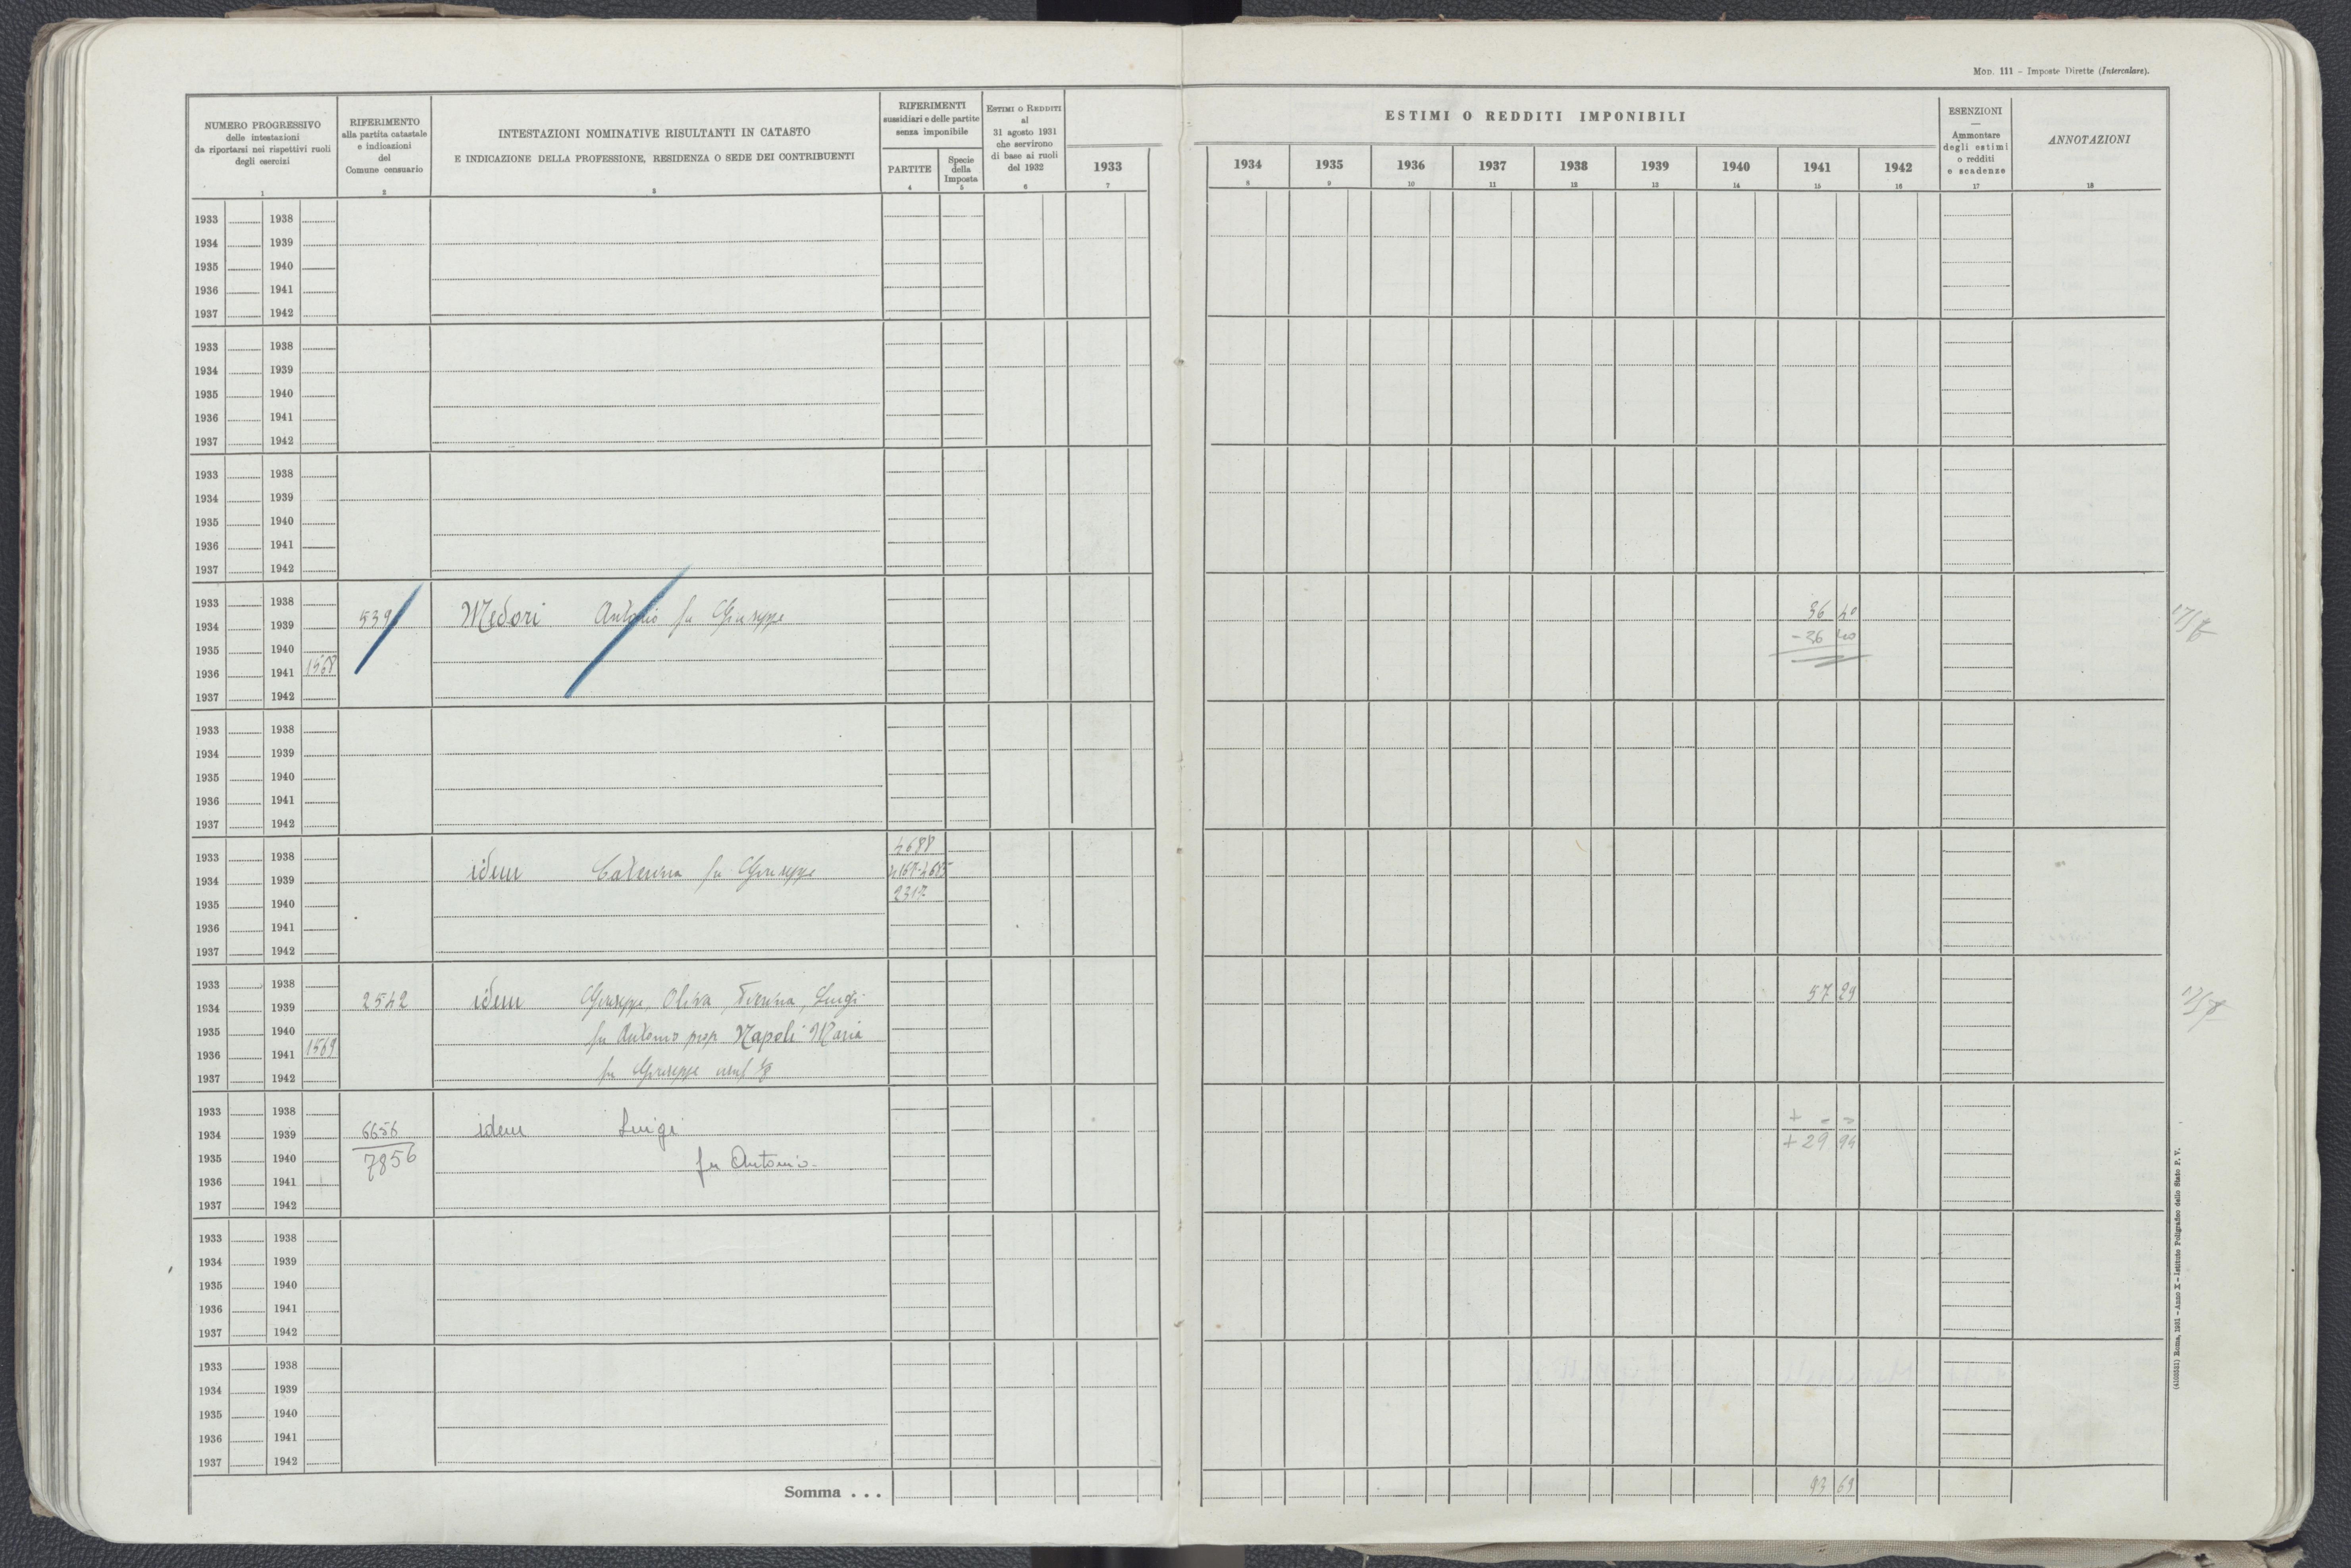 MOD. 111 – Imposte Dirette (Intercalare).
NUMERO PROGRESSIVO
delle intestazioni
da riportarsi nei rispettivi ruoli
degli esercizi
1
RIFERIMENTO
alla partita catastale
e indicazioni
del
Comune censuario
2
INTESTAZIONI NOMINATIVE RISULTANTI IN CATASTO
E INDICAZIONE DELLA PROFESSIONE, RESIDENZA O SEDE DEI CONTRIBUENTI
3
RIFERIMENTI
sussidiari e delle partite
senza imponibile
PARTITE
4
Specie
della
Imposta
5
ESTIMI O REDDITI
al
31 agosto 1931
che servirono
di base ai ruoli
del 1932
6
1933
7
ESTIMI O REDDITI IMPONIBILI
1934 1935 1936 1937 1938 1939 1940 1941 1942
8 9 10 11 12 13 14 15 16
ESENZIONI
—
Ammontare
degli estimi
o redditi
e scadenze
17
ANNOTAZIONI
18
1933 1938
1934 1939
1935 1940
1936 1941
1937 1942
1933 1938
1934 1939
1935 1940
1936 1941
1937 1942
1933 1938
1934 1939
1935 1940
1936 1941
1937 1942
1933 1938
1934 1939 539 Medori Antonio fu Giuseppe 36 40
1935 1940 -36 40
1936 1941 1568
1937 1942
1933 1938
1934 1939
1935 1940
1936 1941
1937 1942
1933 1938 4688
1934 1939 idem Caterina fu Giuseppe
1935 1940 2317
1936 1941
1937 1942
1933 1938
1934 1939 2542 idem Giuseppe, Oliva, Luigi 57 29
1935 1940 fu Antonio prop Napoli Maria
1936 1941 1569
1937 1942 fu Giuseppe usuf
1933 1938
1934 1939 6656 idem Luigi + 29 94
1935 1940 7856 fu Antonio
1936 1941
1937 1942
1933 1938
1934 1939
1935 1940
1936 1941
1937 1942
1933 1938
1934 1939
1935 1940
1936 1941
1937 1942
Somma . . . 93 69
(4103551) Roma, 1931 – Anno X – Istituto Poligrafico dello Stato P. V.